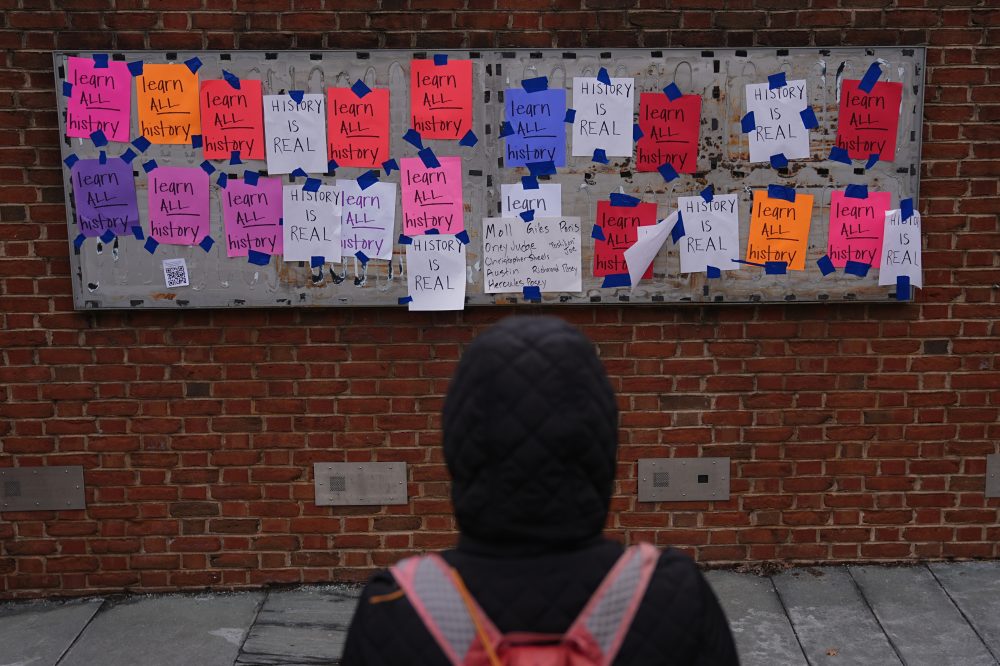 learn
ALL
history
learn
ALL
history
learn
ALL
history
HISTORY
IS
REAL
learn
ALL
history
learn
ALL
history
learn
ALL
history
HISTORY
IS
REAL
learn
ALL
history
HISTORY
IS
REAL
learn
ALL
history
learn
ALL
history
learn
ALL
history
learn
ALL
history
HISTORY
IS
REAL
learn
ALL
history
learn
ALL
history
HISTORY
IS
REAL
learn
Moll Giles Paris
Oney Judge
Christopher Sheels
Joe
Austin Richmond Posey
Hercules Posey
learn
ALL
history
HISTORY
IS
REAL
learn
ALL
history
learn
ALL
history
HISTORY
IS
REAL